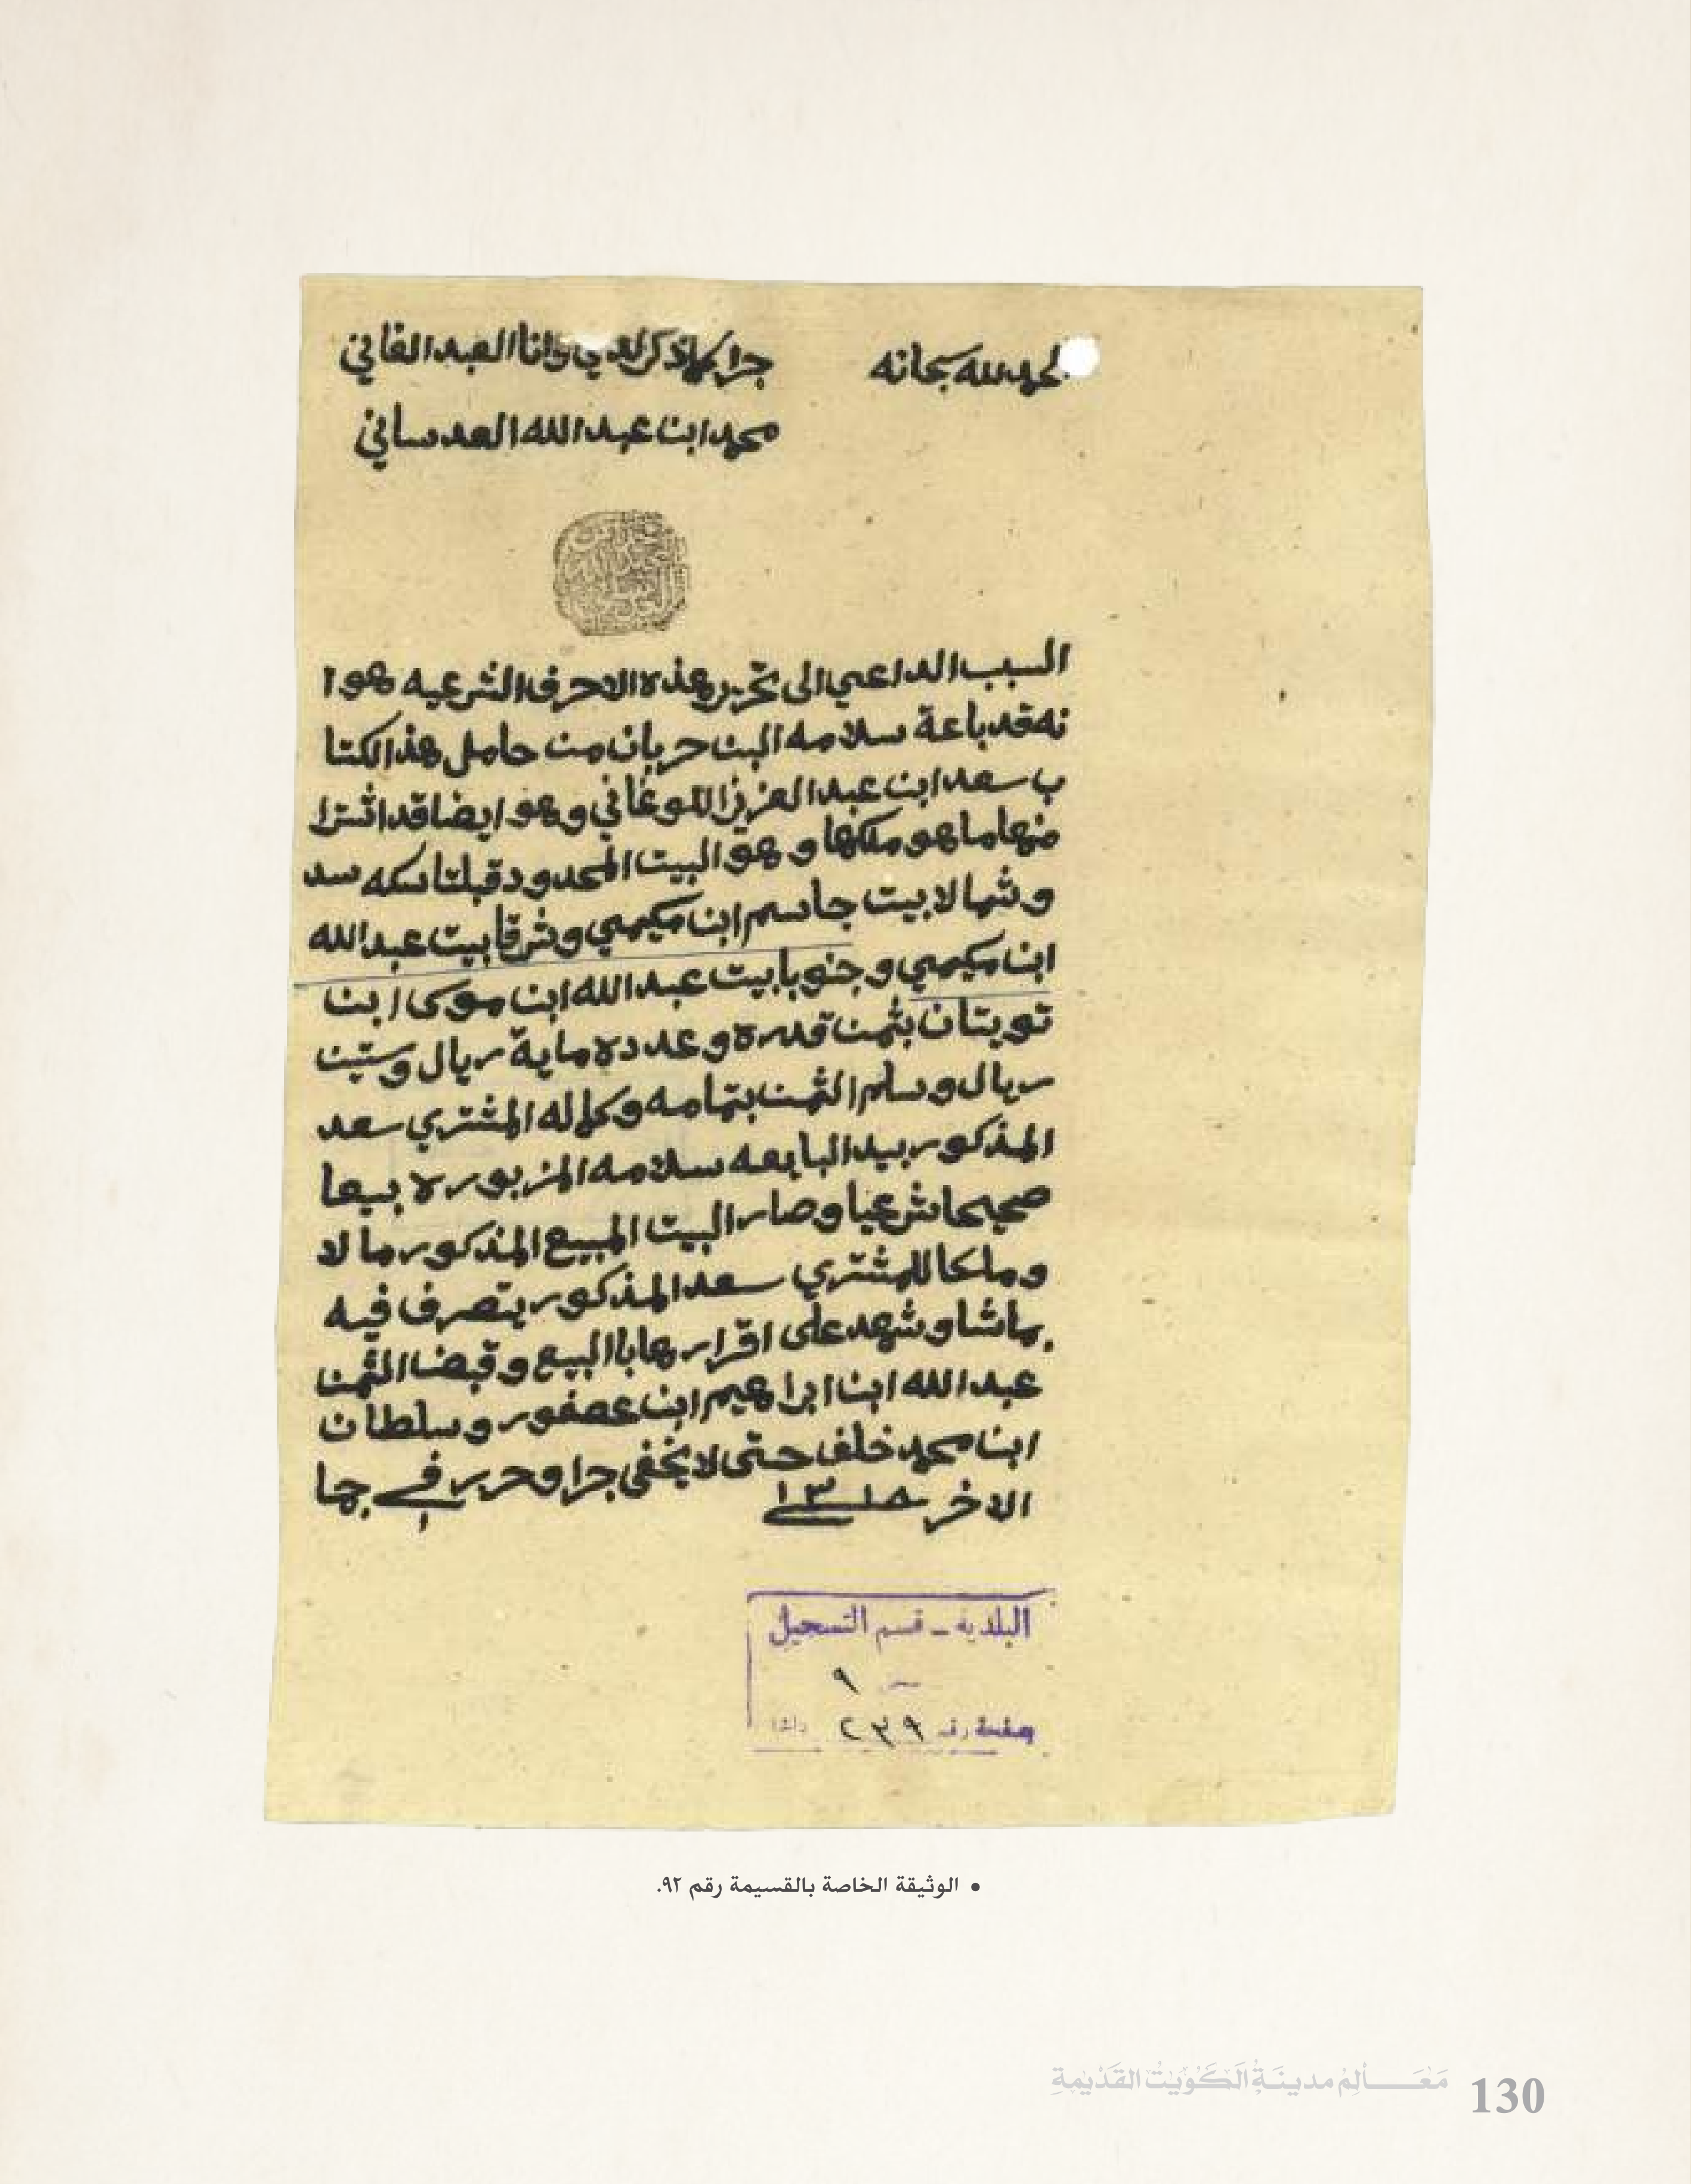 الحمد لله سبحانه
جرا كما ذكر لدي وانا العبد الفاني
محمد ابن عبدالله العدساني
السبب الداعي الى تحرير هذه الاحرف الشرعيه هو ا
نه قد باعة سلامه البن حربان من حامل هذ الكتا
ب سعد ابن عبد العزيز اللوغاني وهو ايضا قد اشترا
منها ما هو ملكها وهو البيت المحدود قبلتا سكه سد
وشمالا بيت جاسم ابن مكيمي وشرقا بيت عبدالله
ابن مكيمي وجنوبا بيت عبدالله ابن موسى ابن
تويتان بثمن قدره وعدده ماية ريال وستين
ريال وسلم الثمن بتمامه وكماله المشتري سعد
المذكور بيد البايعه سلامه المزبوره بيعا
صحيحا شرعيا وصار البيت المبيع المذكور مالا
وملكا للمشتري سعد المذكور يتصرف فيه
بما شا وشهد على اقرارها باالبيع وقبض الثمن
عبدالله ابن ابراهيم ابن عصفور وسلطان
ابن محمد خلف حتى لا يخفى جرا وحرر في جما
الاخر ١٣١٨
البلدية - قسم التسجيل
٩
صفحة رقم ٢٣٩
• الوثيقة الخاصة بالقسيمة رقم ٩٢.
مَعَالِمُ مدينَةِ الكُوَيْتْ القَدْيمَةِ
130